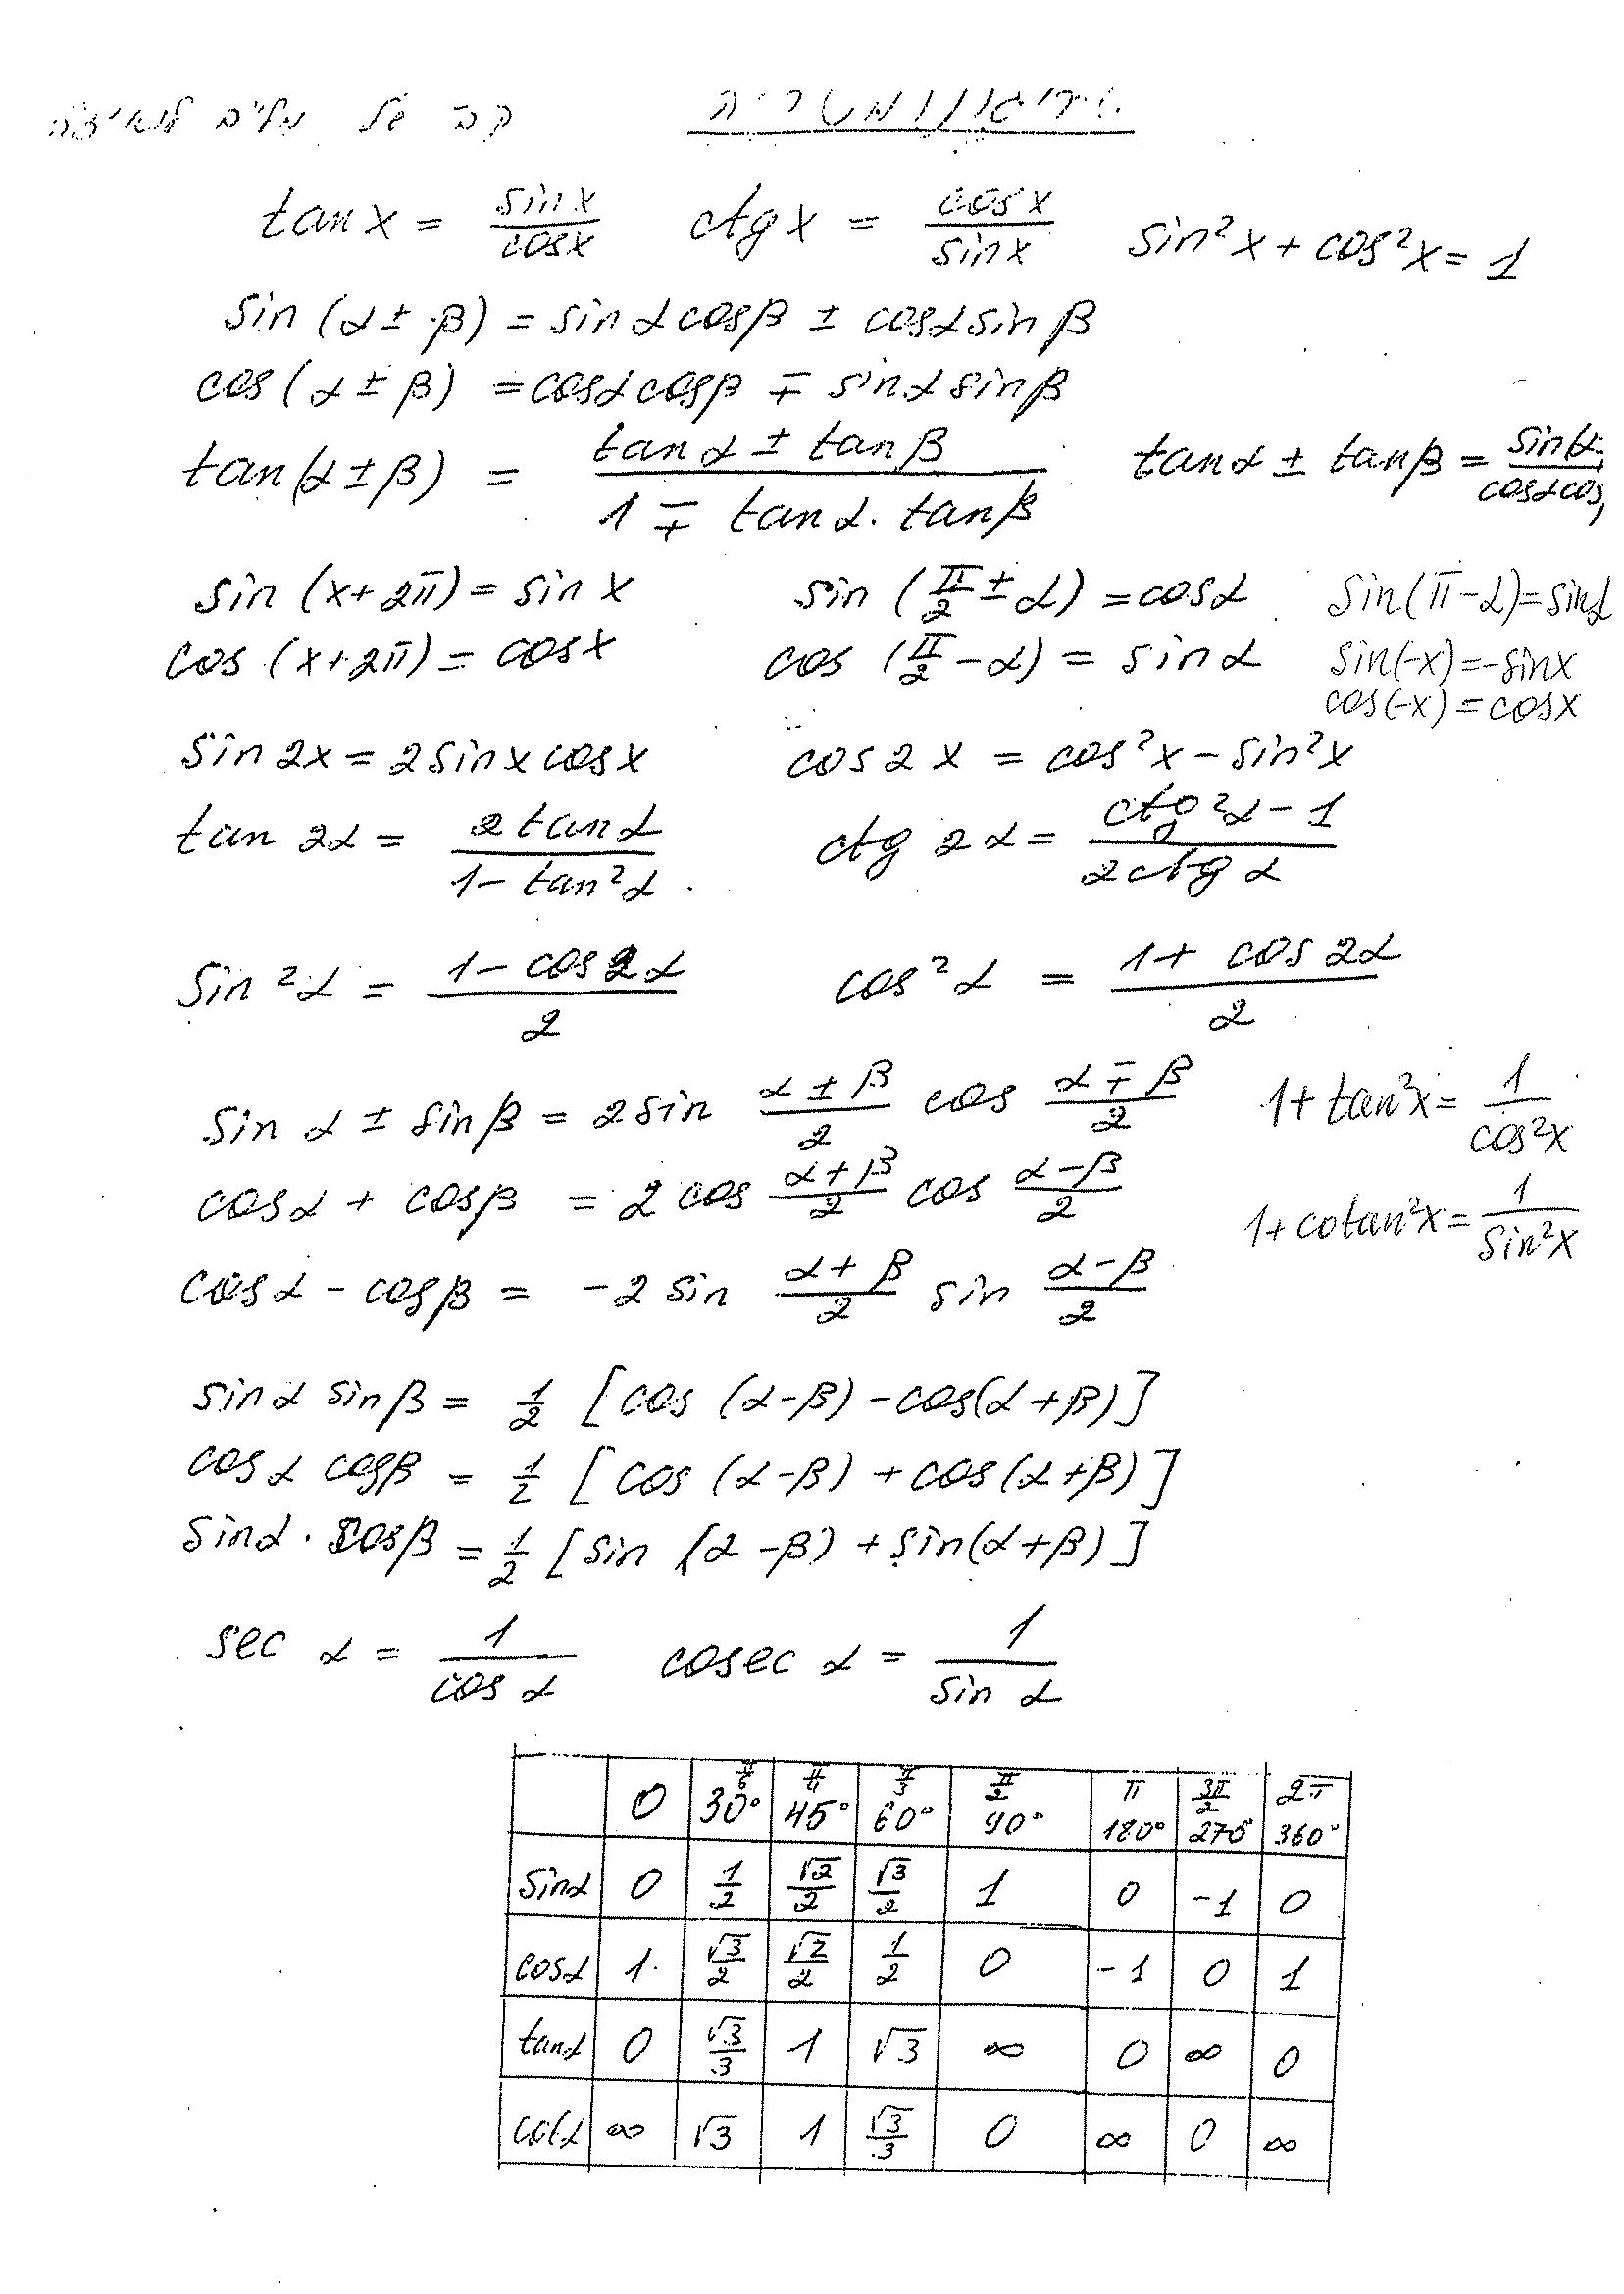 טריגונומטריה
tan x = sin x / cos x   ctg x = cos x / sin x   sin²x + cos²x = 1
sin (α ± β) = sin α cos β ± cos α sin β
cos (α ± β) = cos α cos β ∓ sin α sin β
tan (α ± β) = (tan α ± tan β) / (1 ∓ tan α · tan β)   tan α ± tan β = sin(α / cos α cos
sin (x + 2π) = sin x   sin (π/2 ± α) = cos α   sin(π - α) = sin α
cos (x + 2π) = cos x   cos (π/2 - α) = sin α   sin(-x) = -sin x
cos(-x) = cos x
sin 2x = 2 sin x cos x   cos 2x = cos²x - sin²x
tan 2α = 2 tan α / (1 - tan²α)   ctg 2α = (ctg²α - 1) / 2ctg α
sin²α = (1 - cos 2α) / 2   cos²α = (1 + cos 2α) / 2
sin α ± sin β = 2 sin (α ± β)/2 cos (α ∓ β)/2   1 + tan²x = 1 / cos²x
cos α + cos β = 2 cos (α + β)/2 cos (α - β)/2   1 + cotan²x = 1 / sin²x
cos α - cos β = -2 sin (α + β)/2 sin (α - β)/2
sin α sin β = 1/2 [cos (α - β) - cos(α + β)]
cos α cos β = 1/2 [cos (α - β) + cos(α + β)]
sin α · cos β = 1/2 [sin (α - β) + sin(α + β)]
sec α = 1 / cos α   cosec α = 1 / sin α
π/6 π/4 π/3 π/2 π 3π/2 2π
0 30° 45° 60° 90° 180° 270° 360°
sin α 0 1/2 √2/2 √3/2 1 0 -1 0
cos α 1 √3/2 √2/2 1/2 0 -1 0 1
tan α 0 √3/3 1 √3 ∞ 0 ∞ 0
cot α ∞ √3 1 √3/3 0 ∞ 0 ∞